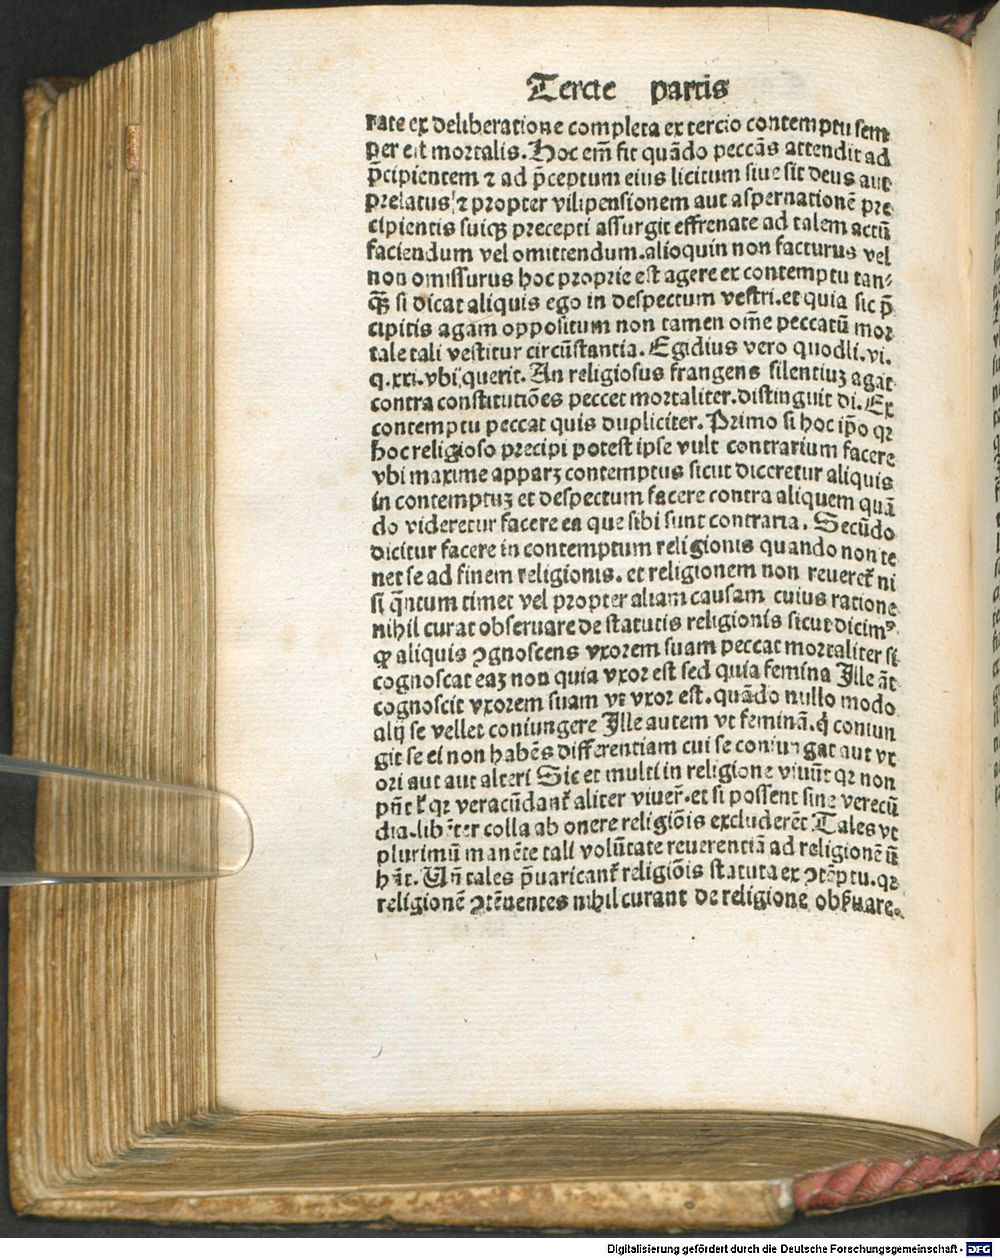 Tercie partis
rate ex deliberatione completa ex tercio contemptu sem
per est mortalis. Hoc em̄ fit quādo peccās attendit ad
p̄cipientem ⁊ ad p̄ceptum eius licitum siue sit deus aut
prelatus, ⁊ propter vilipensionem aut aspernationē pre
cipientis suiqꝫ precepti assurgit effrenate ad talem actū
faciendum vel omittendum. alioquin non facturus vel
non omissurus hoc proprie est agere ex contemptu tan-
qꝫ̄ si dicat aliquis ego in despectum vestri. et quia sic p̄
cipitis agam oppositum non tamen om̄e peccatū mor
tale tali vestitur circūstantia. Egidius vero quodli. vi.
q. xxi. vbi querit. An religiosus frangens silentiuꝫ agat
contra constitutiōes peccet mortaliter. distinguit di. Ex
contemptu peccat quis dupliciter. Primo si hoc ip̄o qꝛ
hoc religioso precipi potest ipse vult contrarium facere
vbi maxime apparꝫ contemptus sicut diceretur aliquis
in contemptuꝫ et despectum facere contra aliquem quā
do videretur facere ea que sibi sunt contraria. Secūdo
dicitur facere in contemptum religionis quando non te
net se ad finem religionis. et religionem non reueret̄ ni
si q̄ntum timet vel propter aliam causam cuius ratione
nihil curat obseruare de statutis religionis sicut dicimꝰ
ꝙ aliquis ꝯgnoscens vxorem suam peccat mortaliter si
cognoscat eaꝫ non quia vxor est sed quia femina Ille āt
cognoscit vxorem suam vt vxor est. quādo nullo modo
alij se vellet coniungere Ille autem vt feminā. q̄ coniun
git se ei non habēs differentiam cui se coniungat aut vx
ori aut aut alteri Sic et multi in religione viuūt qꝛ non
pn̄t ł qꝛ veracūdant̄ aliter viuer̄. et si possent sine verecū
dia. lib̄ter colla ab onere religiōis excluderēt Tales vt
plurimū manēte tali volūtate reuerentiā ad religionē n̄
hn̄t. Un̄ tales p̄uaricant̄ religiōis statuta ex ꝯtēptu. qꝛ
religionē ꝯtēnentes nihil curant de religione obẜuare.
Digitalisierung gefördert durch die Deutsche Forschungsgemeinschaft - DFG